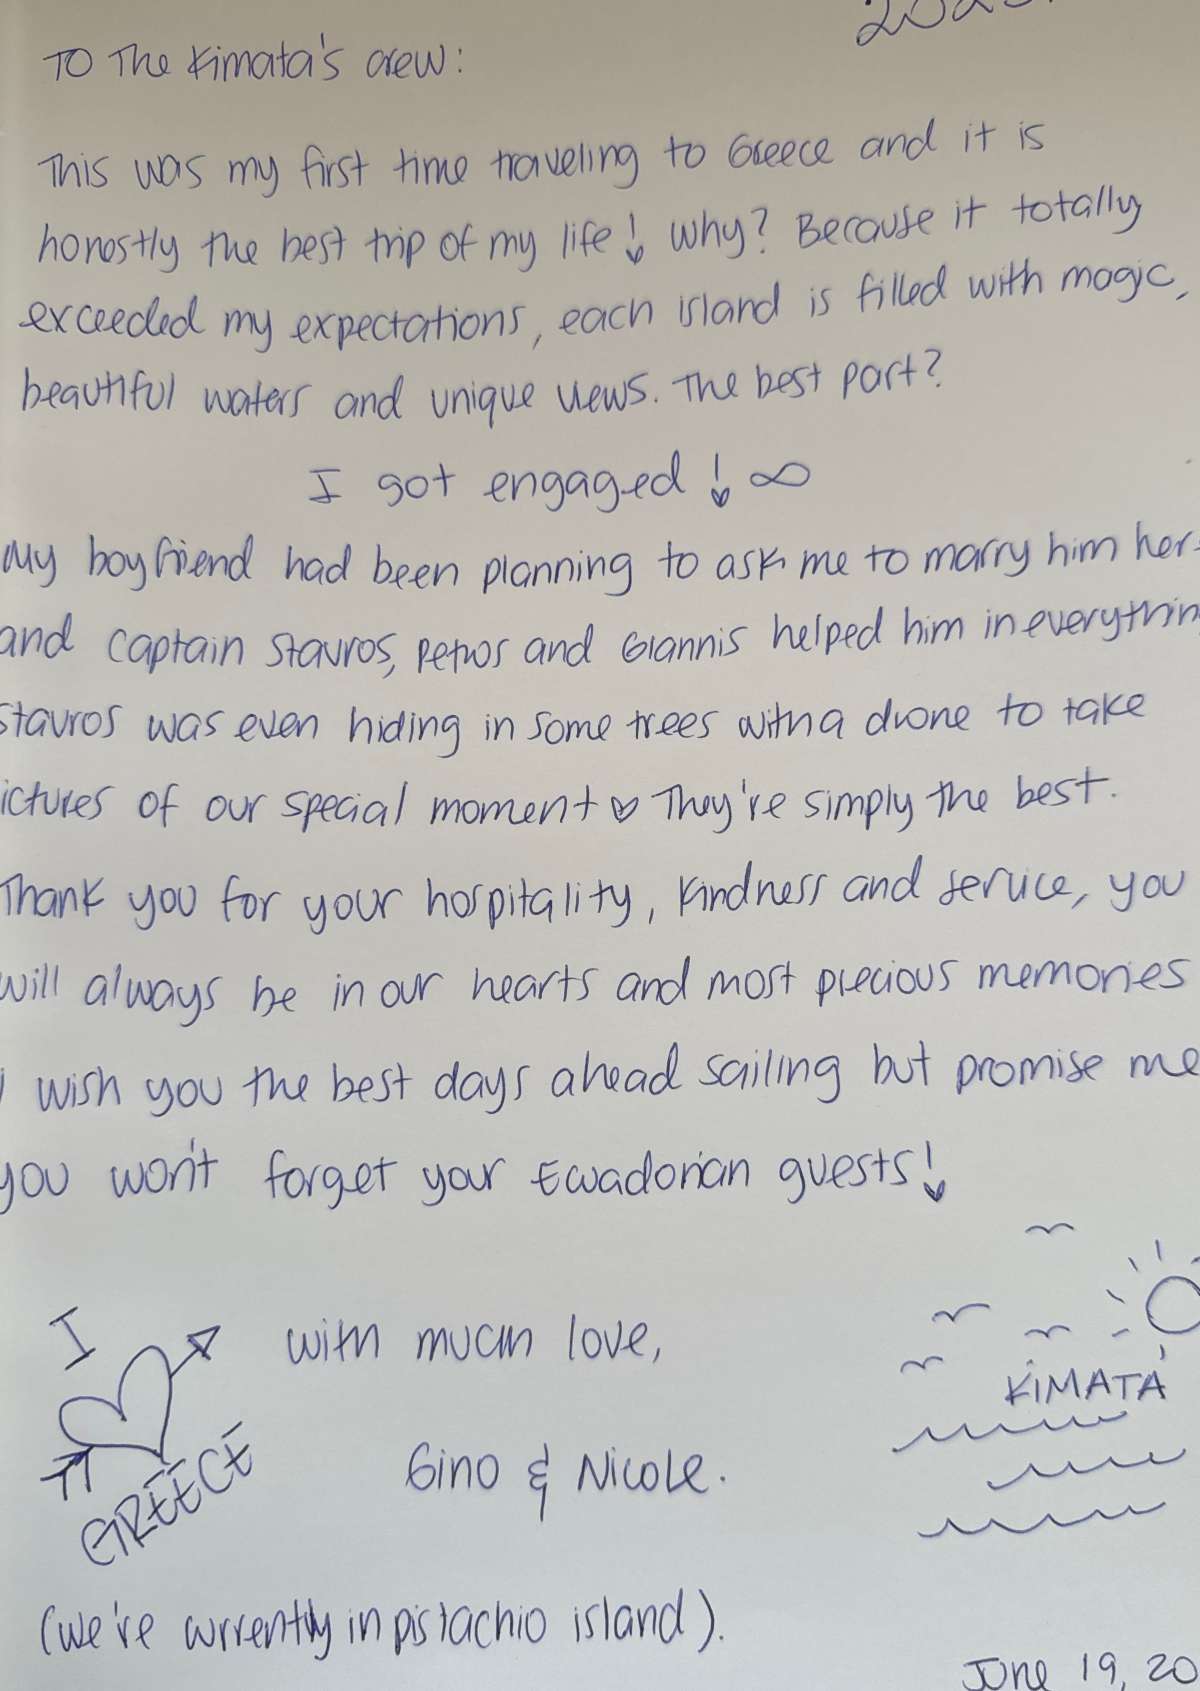 To The Kimata's crew:
This was my first time traveling to Greece and it is
honestly the best trip of my life! Why? Because it totally
exceeded my expectations, each island is filled with magic,
beautiful waters and unique views. The best part?
I got engaged! ∞
My boyfriend had been planning to ask me to marry him her
and captain Stavros, Petros and Giannis helped him in everythin
Stavros was even hiding in some trees with a drone to take
ictures of our special moment ♡ They're simply the best.
Thank you for your hospitality, kindness and service, you
will always be in our hearts and most precious memories
I wish you the best days ahead sailing but promise me
you won't forget your Ecuadorian guests!
I
GREECE
with much love,
Gino & Nicole.
KIMATA
(we're currently in pistachio island).
June 19, 20